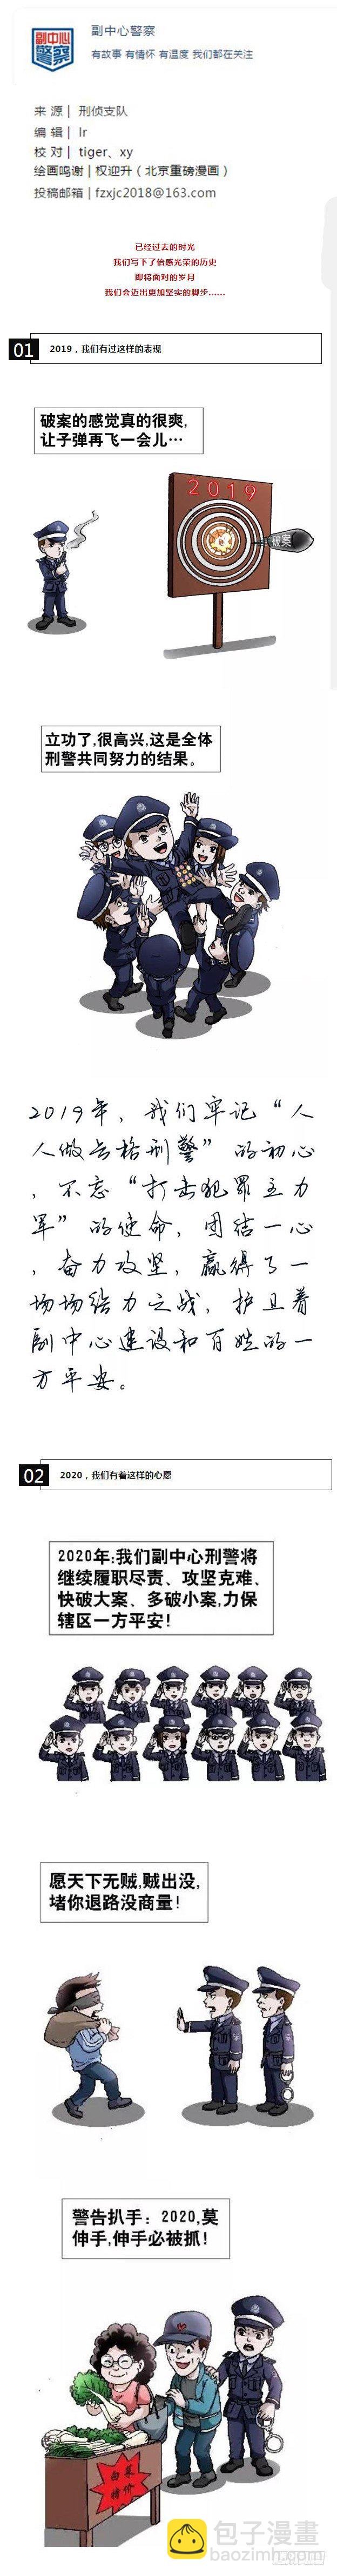 副中心
警察
副中心警察
有故事 有情怀 有温度 我们都在关注
来 源 | 刑侦支队
编 辑 | lr
校 对 | tiger、xy
绘画鸣谢 | 权迎升（北京重磅漫画）
投稿邮箱 | fzxjc2018@163.com
已经过去的时光
我们写下了倍感光荣的历史
即将面对的岁月
我们会迈出更加坚实的脚步......
01
2019，我们有过这样的表现
破案的感觉真的很爽，
让子弹再飞一会儿…
2019
破案
立功了，很高兴，这是全体
刑警共同努力的结果。
2019年，我们牢记“人
人做合格刑警”的初心
，不忘“打击犯罪主力
军”的使命，团结一心
，奋力攻坚，赢得了一
场场给力之战，护卫着
副中心建设和百姓的一
方平安。
02
2020，我们有着这样的心愿
2020年：我们副中心刑警将
继续履职尽责、攻坚克难、
快破大案、多破小案，力保
辖区一方平安！
愿天下无贼，贼出没，
堵你退路没商量！
警告扒手：2020，莫
伸手，伸手必被抓！
白菜
特价
包子漫畫
baozimh.com